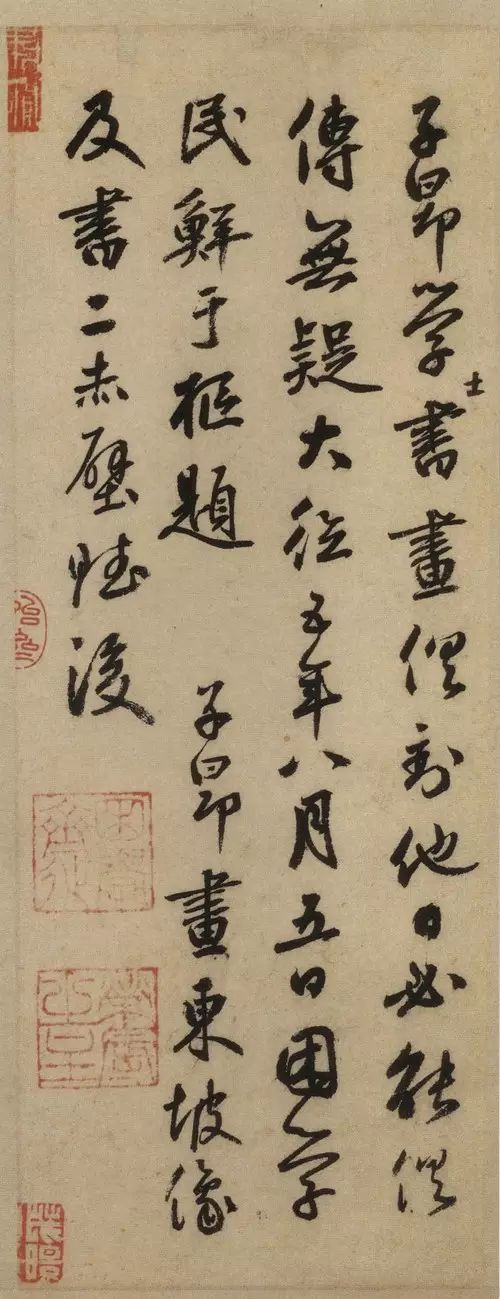 子昂学士書畫俱到他日必能俱
傳無疑大德五年八月五日困学
民鮮于樞題 子昂畫東坡像
及書二赤壁賦後